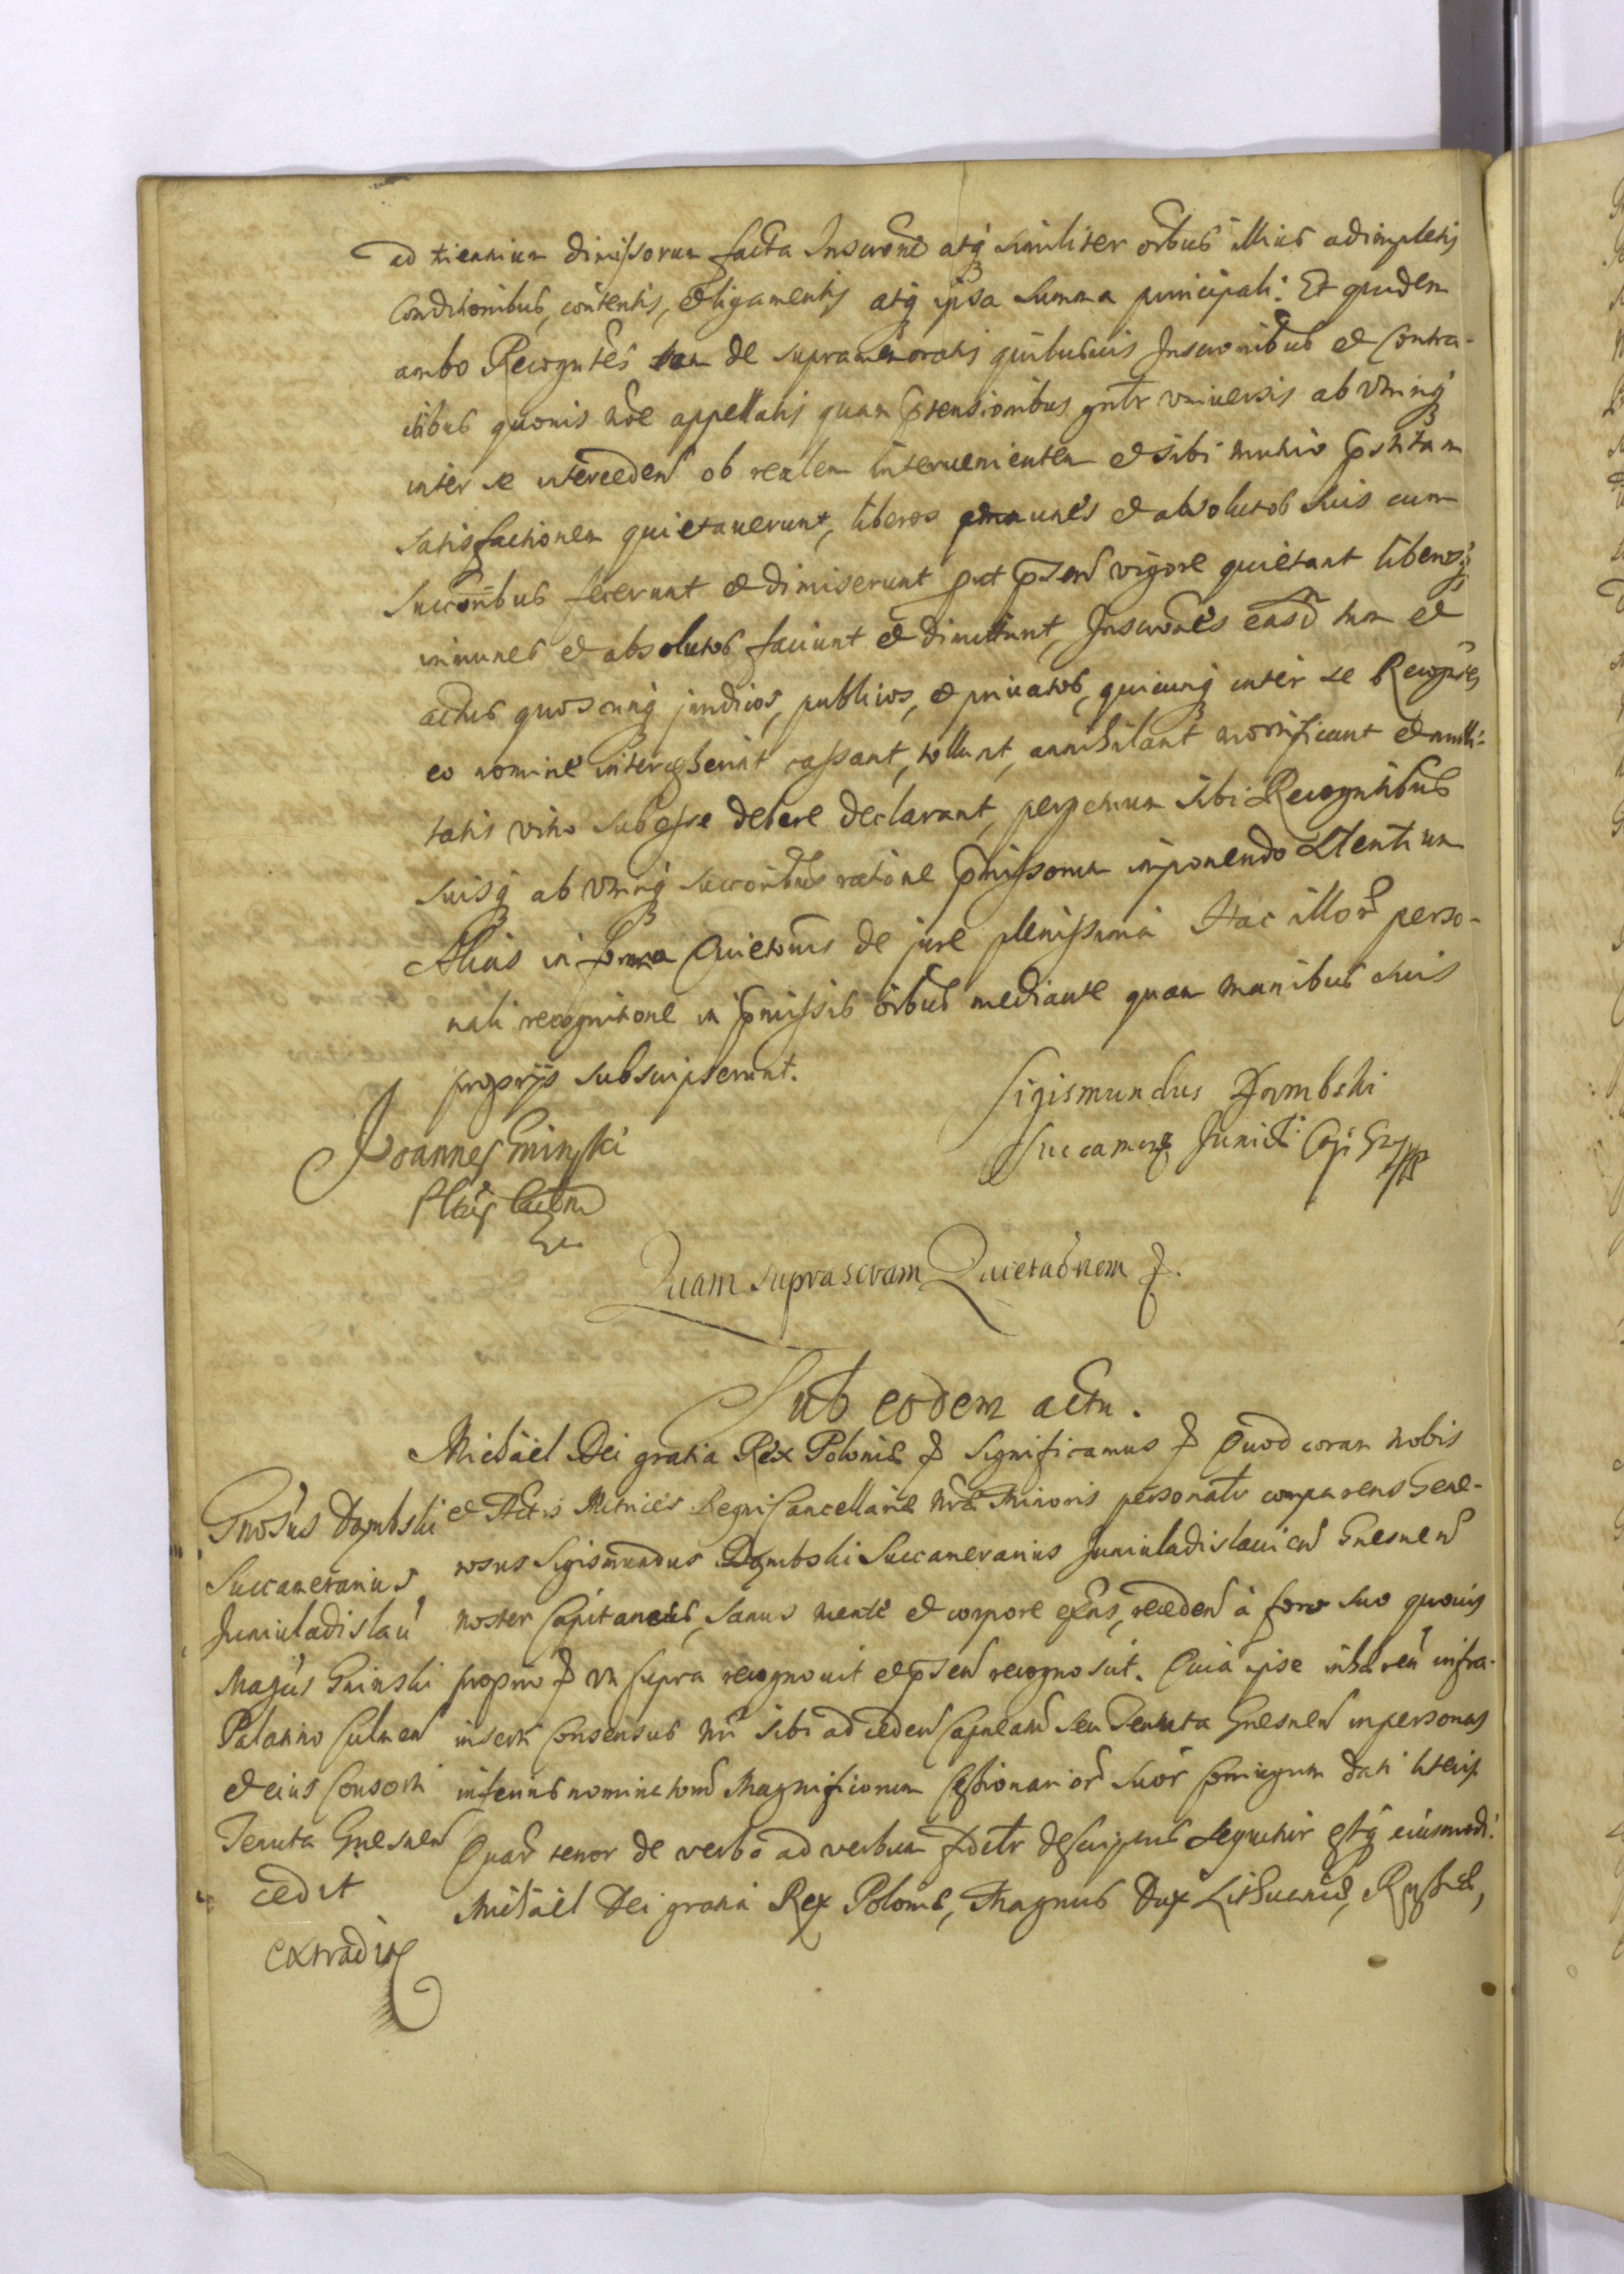 ad triennium dimissorum facta Inscrõne atq similiter oĩbus illius adimpletis
Conditionibus, contentis, & ligamentis atq ipsa Summa principali: Et quidem
ambo Recogntes tam de supramemoratis quibusuis Inscrõnibus et Contra-
ctibus quouis nõe appellatis quam p̃tensionibus gñlr vniuersis ab vtrinq
inter se interceden ob realem interuenientem et sibi mutuo p̃stitam
satisfactionem quietauerunt, liberos et absolutos suis cum
Succoribus fecerunt et dimiserunt prt p̃sen vigore quietant liberosq
immunes et absolutos faciunt et dimittunt, Inscrões easd tum et
actus quoscunq iuridicos, publicos, et priuatos, quicunq inter se Recogntes
eo nomine intercesserint cassant, tollunt, annihilant mortificant et nulli-
tatis vitio subesse debere declarant, perpetuum sibi Recogntibus
suisq ab vtrinq succoribus ratione p̃missorum imponendo silentium
Alias in forma Quietõnis de jure plenissima Hac illor perso-
nali recognitione in p̃missis oĩbus mediante quam manibus suis
proprijs subscripserunt.
Sigismundus Dąmbski
Succamerar Juniul Capi
Joannes Gninski
Quam suprascram Quietaõnem &.
Sub eodem actu.
Michael Dei gratia Rex Poloniæ & Significamus & Quod coram nobis
et Actis Metrices Regni Cancellariæ nrae Minoris personalr comparens Gene-
rosus Sigismundus Dąmbski Succamerarius Juniuladislauien Gnesnen
noster Capitaneus, sanus mente et corpore exns, receden à foro suo quouis
proprio & vt supra recognouit et p̃sen recognoscit. Quia ipse inhæren infra-
inserti Consensus nri sibi ad ceden Capneatu seu Tenuta Gnesnen in personas
inferius nominatorũ Magnificorum Cessionarior suor coniugum dati literis
Quar tenor de verbo ad verbum descriptus sequitur estq eiusmodi.
Michael Dei gratia Rex Poloniæ, Magnus Dux Lithuaniæ, Russiæ,
Gnosus Dąmbski
Succamerarius
Juniuladislau
Magcis Gninski
Palatino Culmen
et eius Consorti
Tenuta Gnesnen
cedit
extradit